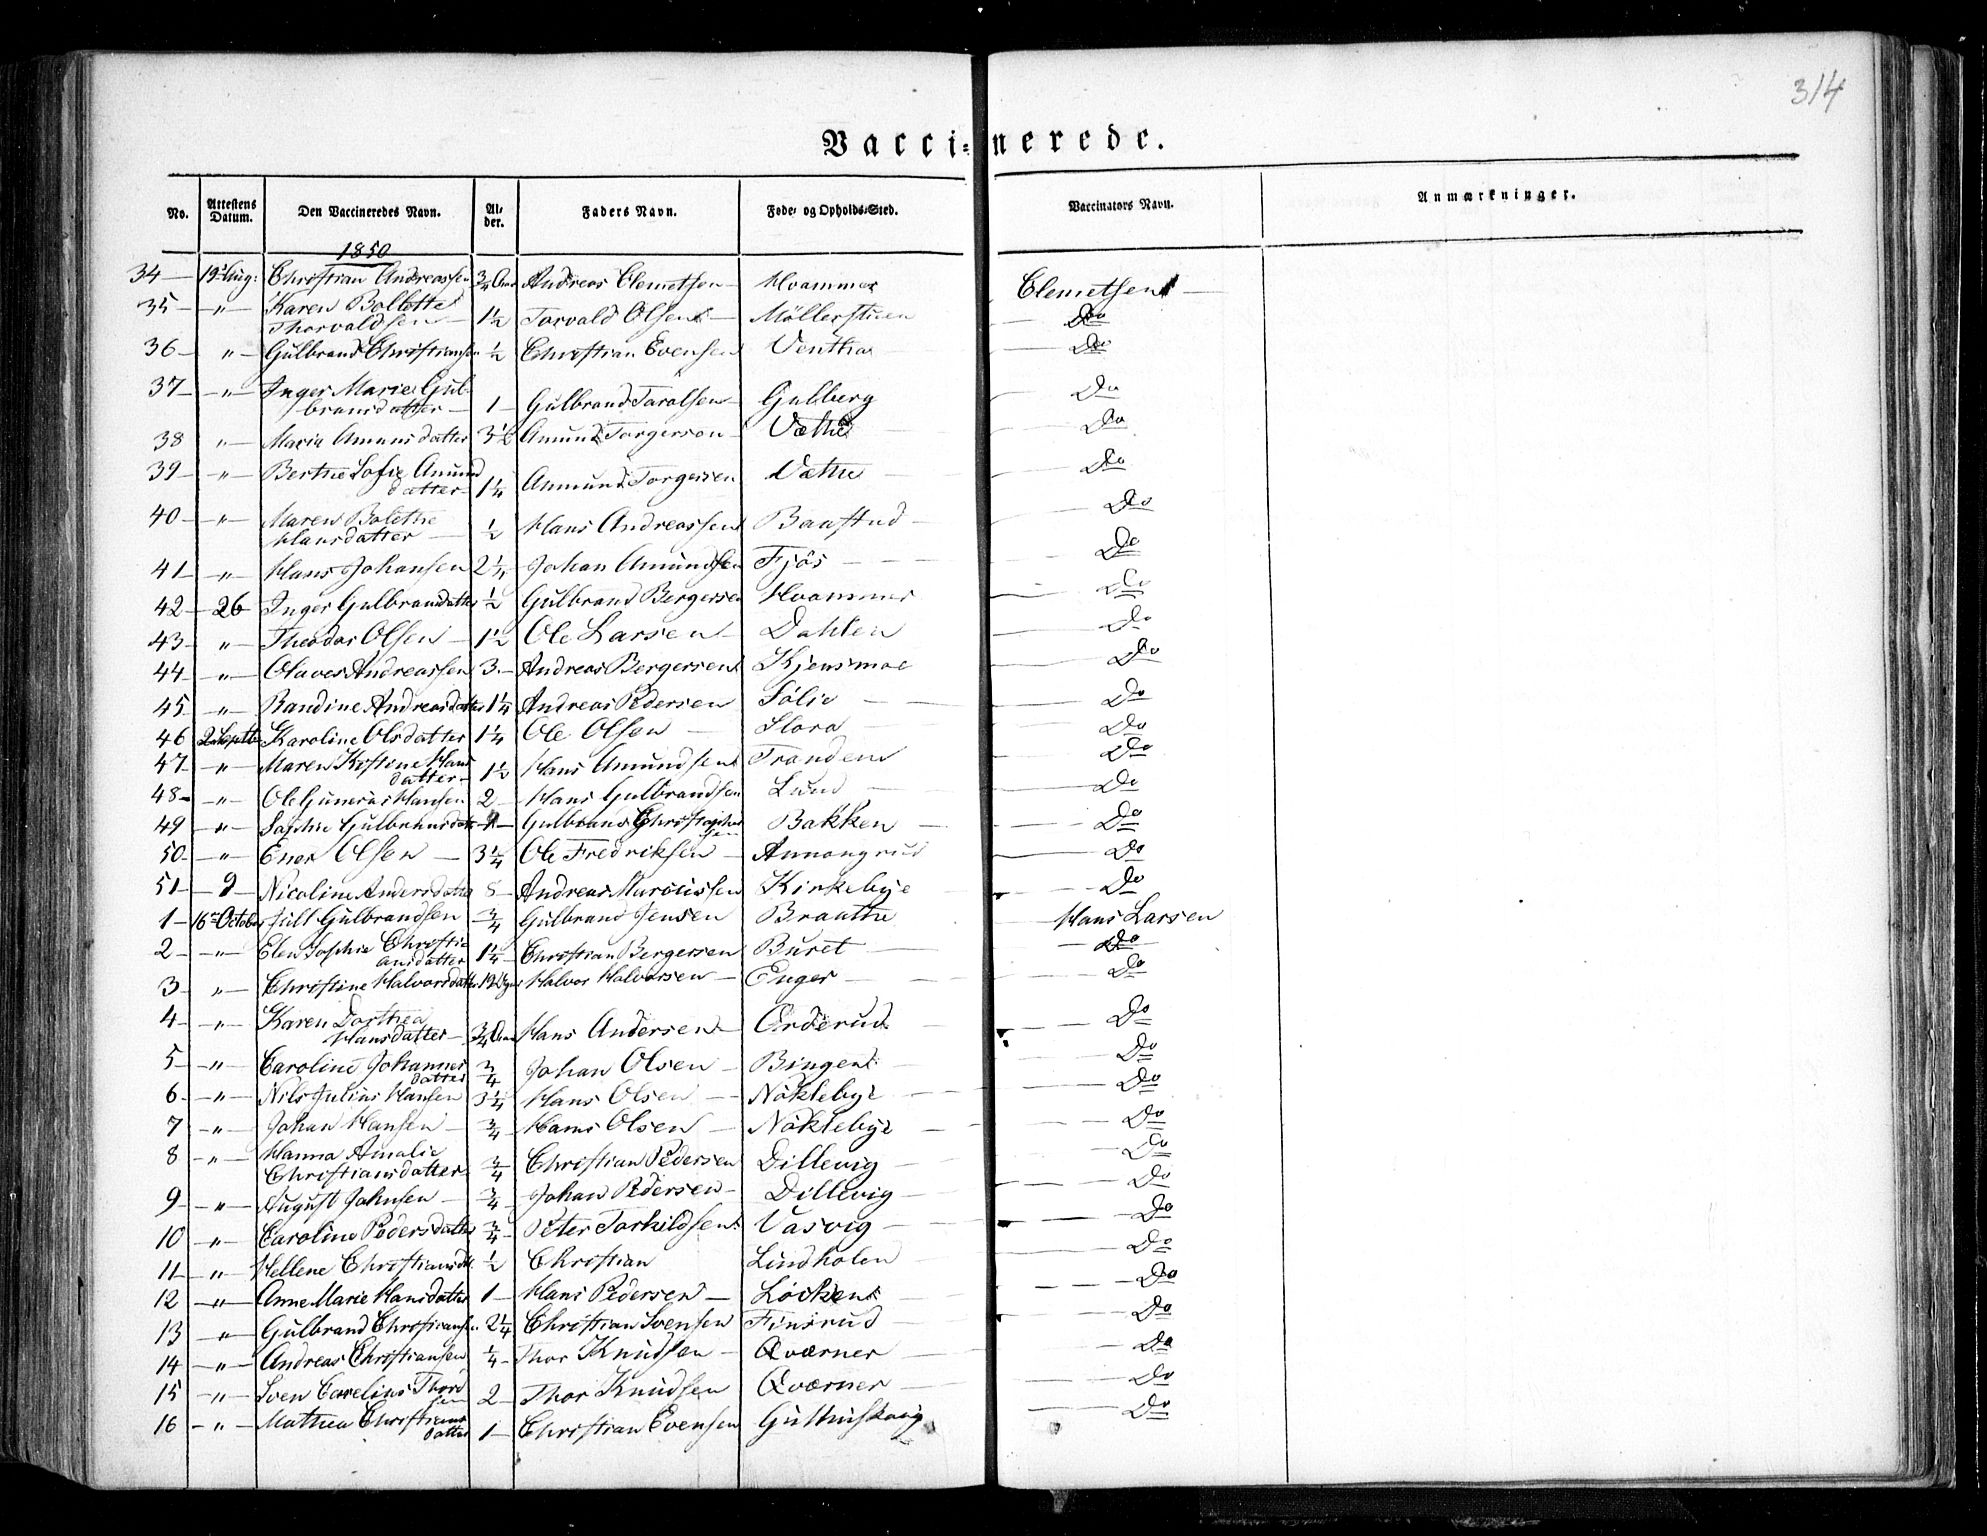 314
Vacci= nerede.
No. Attestens Datum. Den Vaccineredes Navn. Al= der. Faders Navn. Føde= og Opholds=Sted. Vaccinators Navn. Anmærkninger.
1850
34 — 19 Aug: Christian Andreassen 3/4 Aar Andreas Clemetsen — Hvammer Clemetsen —
35 — " — Karen Bolette
Thorvaldsen — 1 1/2 Torvald Olsen — Møllerstuen — Do
36 — " — Gulbrand Christiansen 1/2 Christian Evensen Ventha — Do
37 — " — Inger Marie Gul=
bransdatter — 1 — Gulbrand Taralsen Gulberg — Do
38 " — Maria Amunsdatter 3 1/2 Amund Torgersen — Væthe — Do
39 — " — Berthe Sofie Amund
datter — 1 1/4 Amund Torgersen Væthe — Do
40 — " — Maren Bolethe
Hansdatter — 1/2 Hans Andreassen Baastud — Do
41 — " — Hans Johansen 2 1/4 Johan Amundsen Fjøs — Do
42 — 26 Inger Gulbransdatter 1/2 Gulbrand Bergersen Hvammer — Do
43 — " — Theodor Olsen — 1 1/2 Ole Larsen — Dahlen — Do
44 — " — Olaves Andreassen 3 — Andreas Bergersen Kjensmoe — Do
45 — " — Randine Andreasdatter 1 1/4 Andreas Pedersen Sølie — Do
46 2 Septbr Karoline Olsdatter 1 1/4 Ole Olsen — Slora — Do
47 — " — Maren Kristine Hans
datter — 1 1/2 Hans Amundsen Trandem — Do
48 — " — Ole Gunerius Hansen 2 — Hans Gulbrandsen Lund — Do
49 — " — Sophie Gulbransdatter — Gulbrand Christopher
sen Bakken — Do
50 — " — Enor Olsen — 3 1/4 Ole Fredriksen — Annongrud — Do
51 — 9 — Nicoline Andersdatter 8 — Andreas Marcussen Kirkebye — Do
1 — 16 October Jull Gulbrandsen 3/4 Gulbrand Jensen Braathe — Hans Larsen
2 — " — Elen Sophie Christi
ansdatter 1 1/4 Christian Bergersen Buret — Do
3 — " — Christine Halvorsdatter 12 Uger Halvor Halvorsen — Enger — Do
4 — " — Karen Dorthea
Hansdatter — 3/4 Aar Hans Andersen — Orderud — Do
5 — " — Caroline Johannes
datter 3/4 Johan Olsen — Bingen — Do
6 — " — Nils Julius Hansen 3 1/4 Hans Olsen — Nøklebye — Do
7 — " — Johan Hansen — 3/4 Hans Olsen — Nøklebye — Do
8 — " — Hanna Amalie
Christiansdatter 3/4 Christian Pedersen Dillevig — Do
9 — " — August Johnsen — 3/4 Johan Pedersen — Dillevig — Do
10 — " — Caroline Pedersdatter 3/4 Peter Torkildsen Vasvig — Do
11 — " — Hellene Christiansdtr 1/2 Christian Lindholen — Do
12 — " — Anne Marie Hansdatter 1 — Hans Pedersen — Løcken — Do
13 — " — Gulbrand Christiansen 2 1/4 Christian Svensen Finsrud — Do
14 — " — Andreas Christiansen 1/4 — Thor Knudsen — Qværner — Do
15 — " — Sven Carelius Thor
sen 2 — Thor Knudsen Qværner — Do
16 — " — Mathea Christians
datter 1 — Christian Evensen — Do